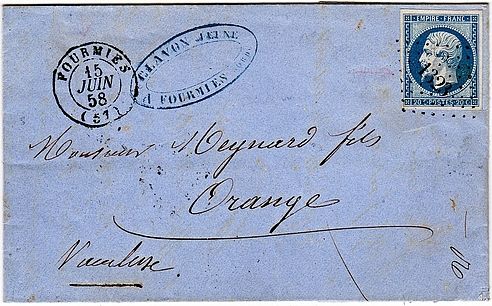 FOURMIES
15
JUIN
58
(57)
CLAVON JEUNE
A FOURMIES
EMPIRE FRANC
20 C POSTES 20 C
Monsieur Meynard fils
Orange
Vaucluse